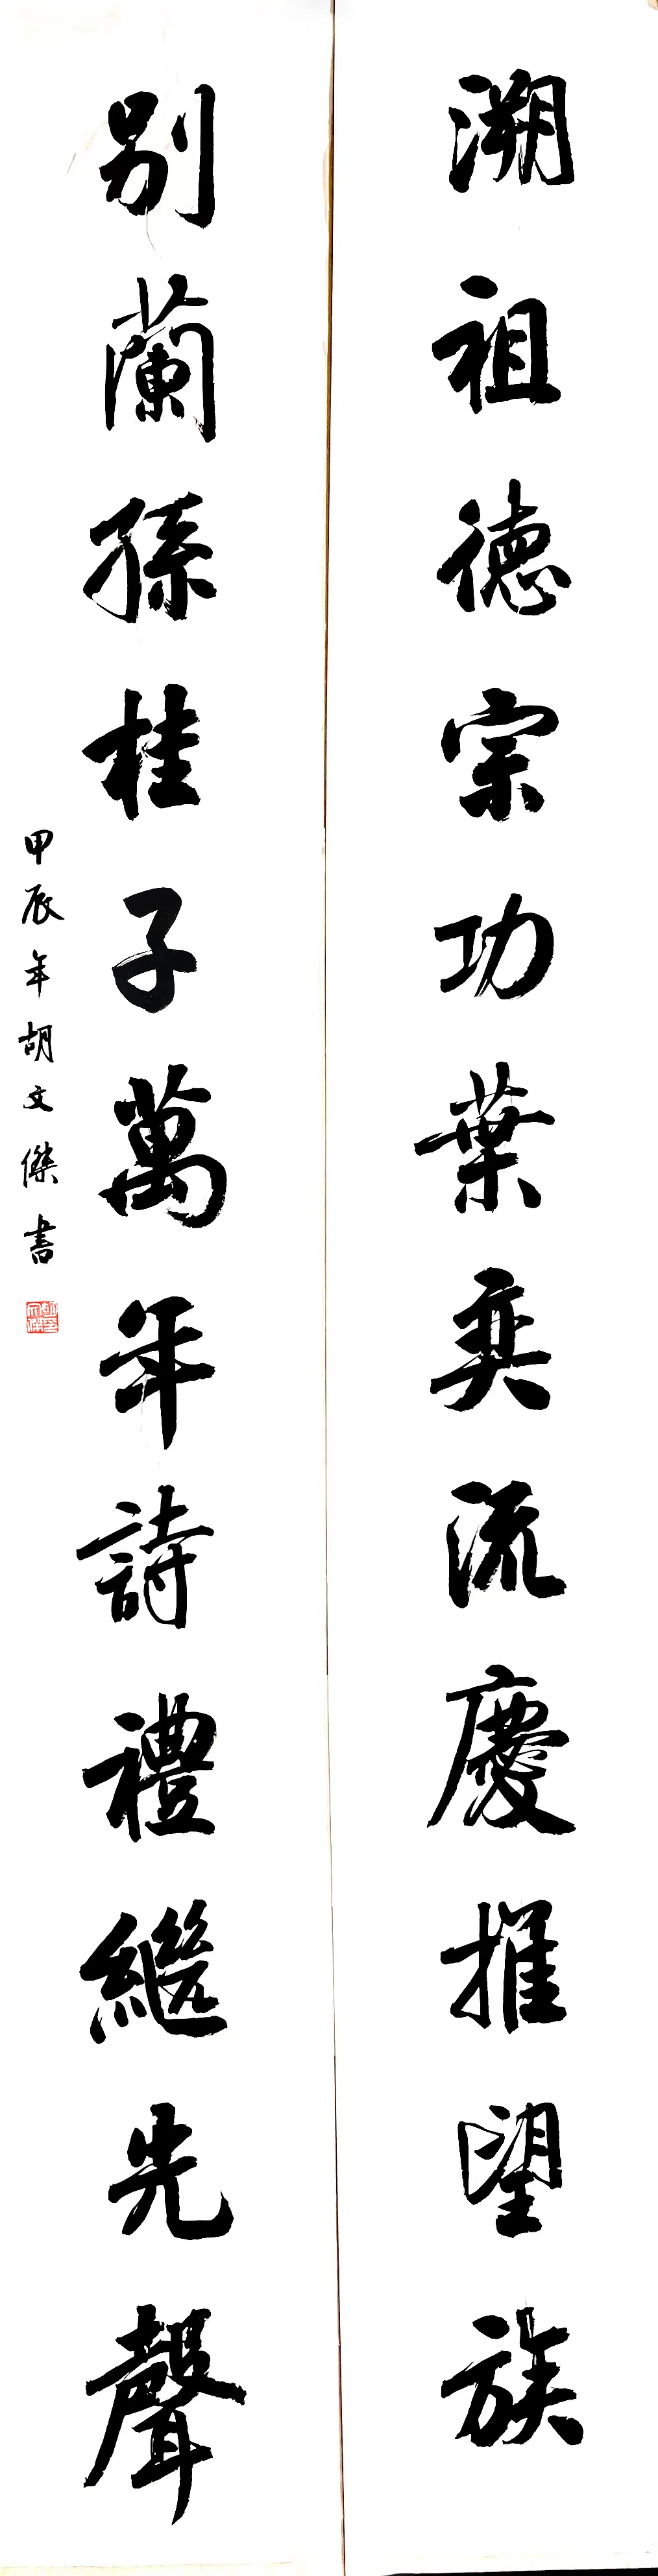 溯祖德宗功葉奕流慶推望族
別蘭孫桂子萬年詩禮繼先聲
甲辰年胡文傑書